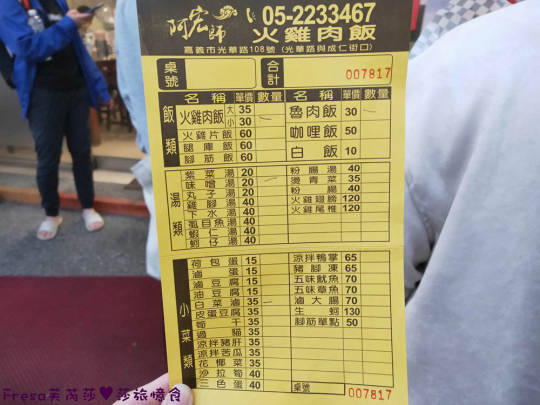 阿宏師
05-2233467
火雞肉飯
嘉義市光華路108號 (光華路與成仁街口)
桌號
合計
007817
飯類
名稱 單價 數量
火雞肉飯 大 35
小 30
火雞片飯 60
腿庫飯 60
腳筋飯 60
名稱 單價 數量
魯肉飯 30
咖哩飯 50
白飯 10
湯類
紫菜湯 20
味噌湯 20
丸子湯 20
雞腳湯 40
下水湯 40
虱目魚湯 40
蝦仁湯 40
蚵仔湯 40
粉腸湯 40
燙青菜 35
粉腸 40
火雞翅膀 120
火雞尾椎 120
小菜類
荷包蛋 15
滷蛋 15
滷豆腐 15
油豆腐 15
白菜滷 35
皮蛋豆腐 35
筍干 35
過貓 35
涼拌豬肝 35
涼拌苦瓜 35
花椰菜 35
沙拉筍 40
三色蛋 40
涼拌鴨掌 65
豬腳凍 65
五味魷魚 70
五味章魚 70
滷大腸 70
生蚵 130
腳筋單點 50
桌號
007817
Fresa芙芮莎♥莎旅憶食